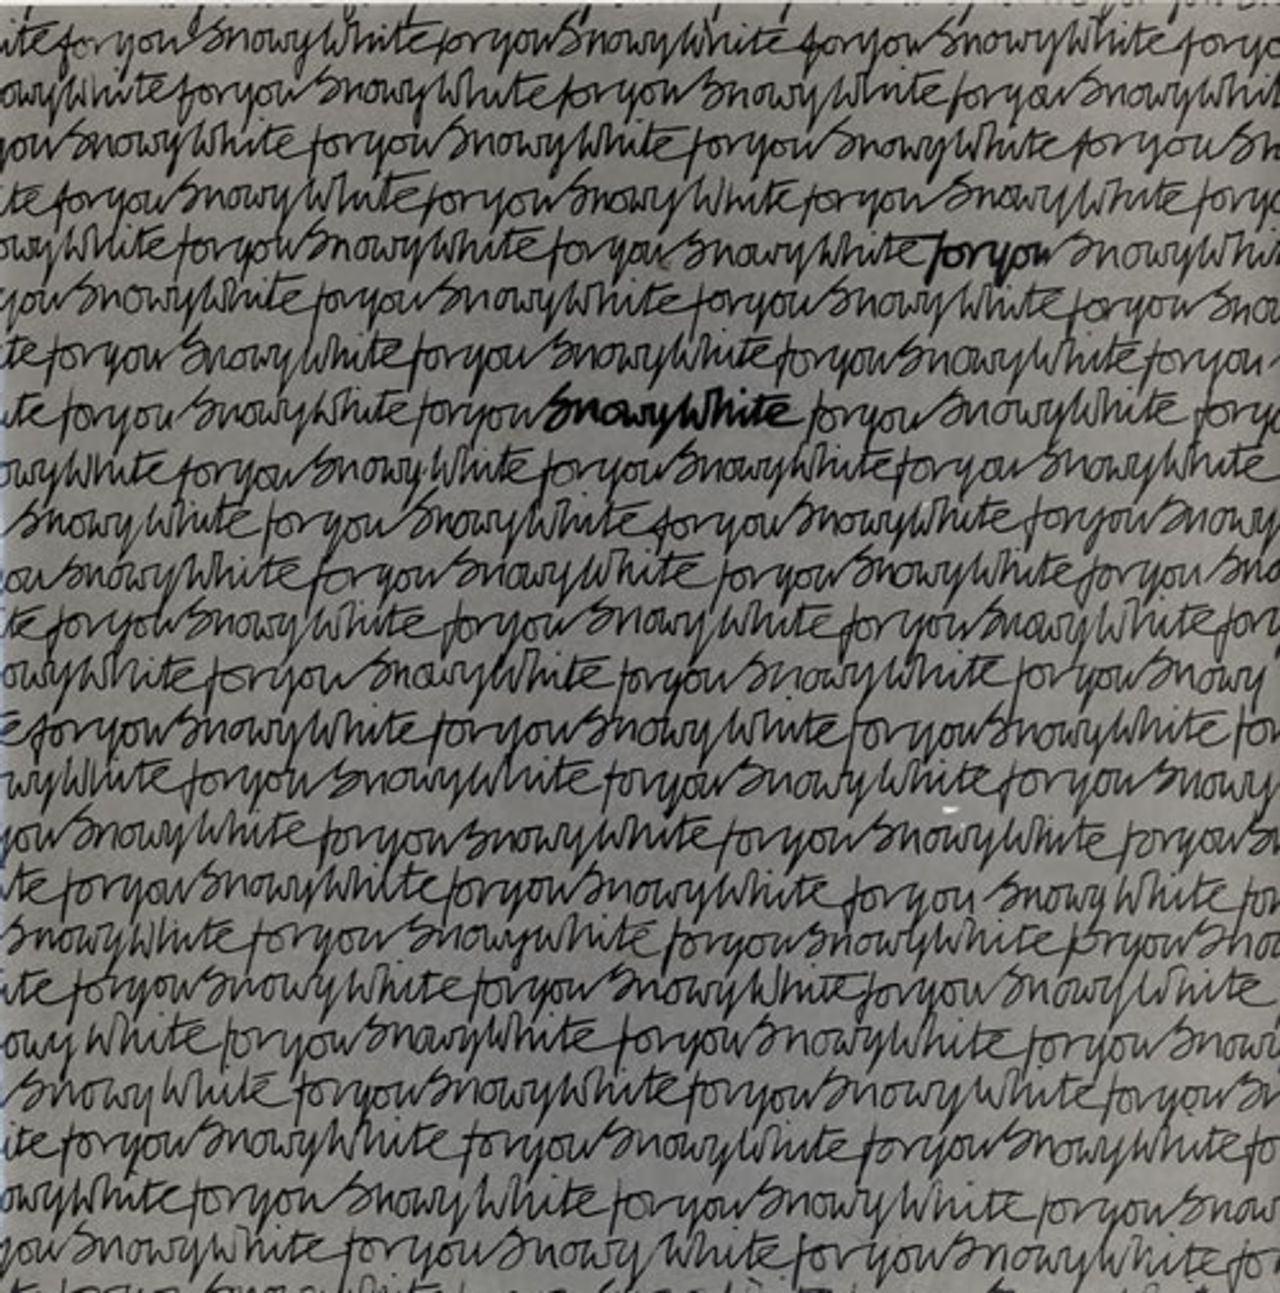 ite for you Snowy White for you Snowy White for you Snowy White for yo
owy White for you Snowy White for you Snowy White for you Snowy Whit
you Snowy White for you Snowy White for you Snowy White for you Sn
ite for you Snowy White for you Snowy White for you Snowy White for yo
owy White for you Snowy White for you Snowy White for you Snowy Whi
you Snowy White for you Snowy White for you Snowy White for you Sno
te for you Snowy White for you Snowy White for you Snowy White for you
ite for you Snowy White for you Snowy White for you Snowy White for yo
owy White for you Snowy White for you Snowy White for you Snowy White
Snowy White for you Snowy White for you Snowy White for you Snowy
ou Snowy White for you Snowy White for you Snowy White for you Sno
ite for you Snowy White for you Snowy White for you Snowy White for
owy White for you Snowy White for you Snowy White for you Snowy
e for you Snowy White for you Snowy White for you Snowy White for
wy White for you Snowy White for you Snowy White for you Snowy
you Snowy White for you Snowy White for you Snowy White for you Sn
ite for you Snowy White for you Snowy White for you Snowy White for
Snowy White for you Snowy White for you Snowy White for you Sno
ite for you Snowy White for you Snowy White for you Snowy White
owy White for you Snowy White for you Snowy White for you Snowy
Snowy White for you Snowy White for you Snowy White for you Sn
ite for you Snowy White for you Snowy White for you Snowy White fo
owy White for you Snowy White for you Snowy White for you Snow
you Snowy White for you Snowy White for you Snowy White for